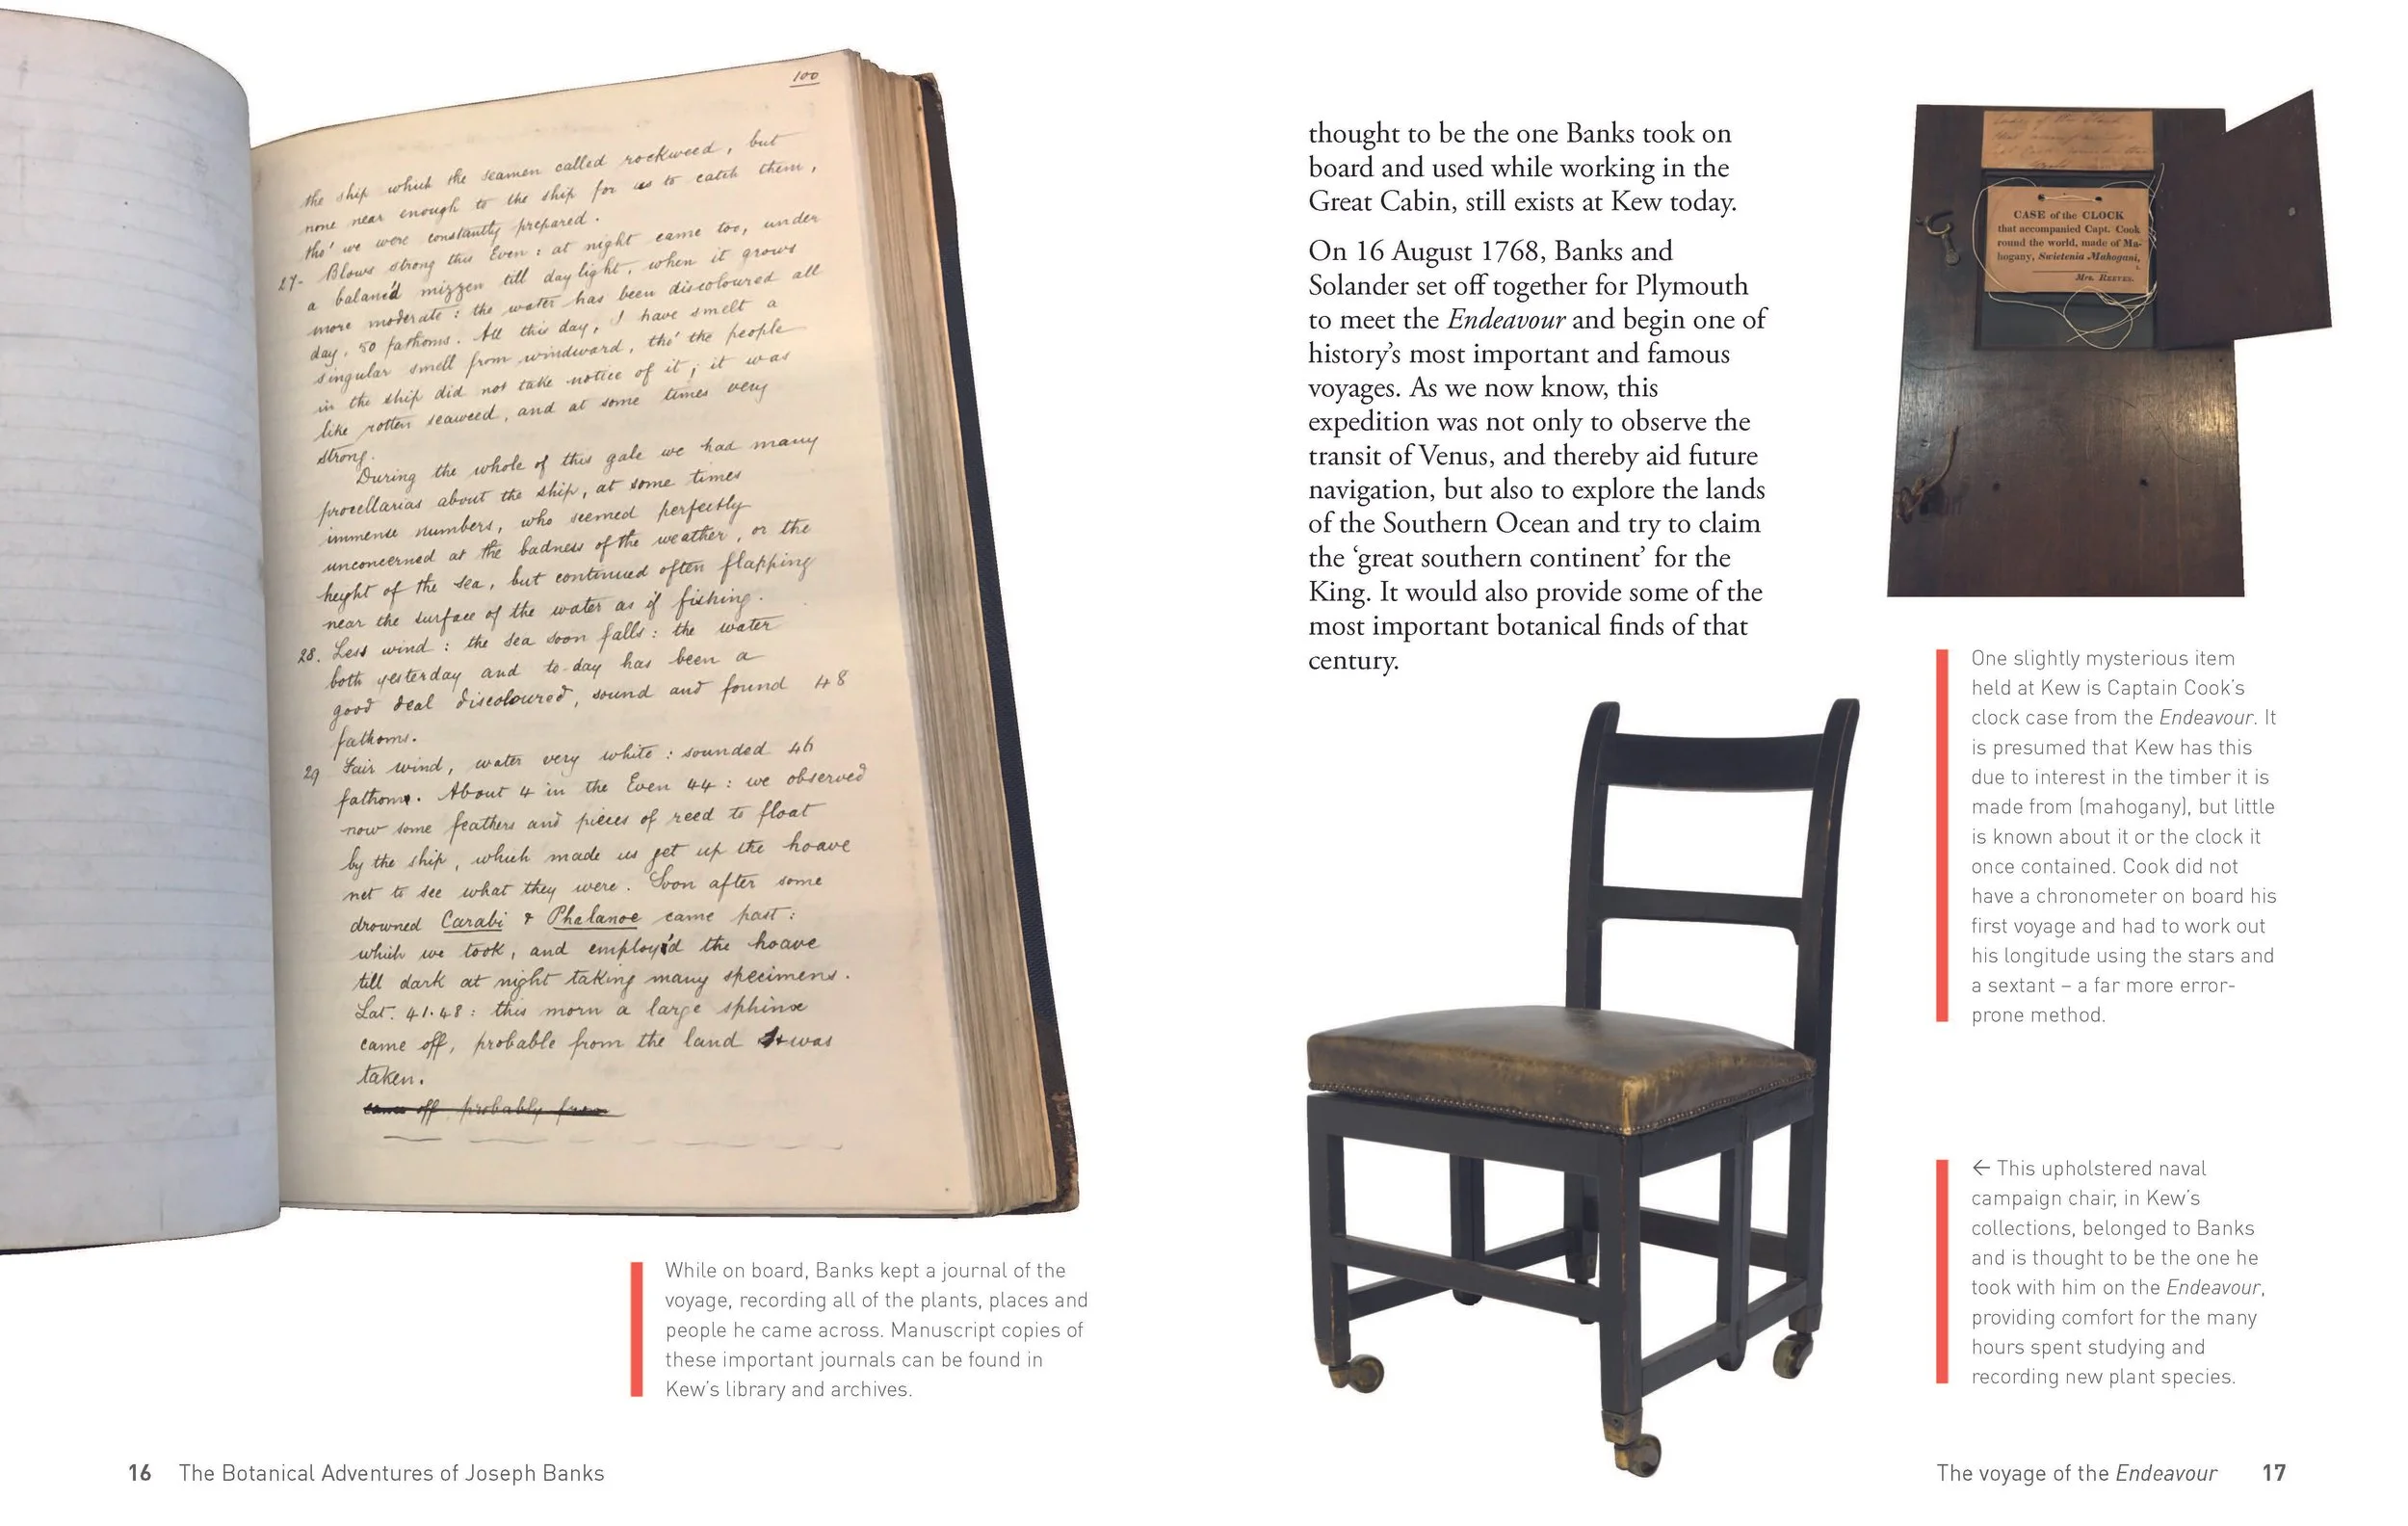 100
the ship which the seamen called rockweed, but
none near enough to the ship for us to catch them,
tho' we were constantly prepared.
27- Blows strong this Even: at night came too, under
a balanc'd mizzen till daylight, when it grows
more moderate: the water has been discoloured all
day, 50 fathoms. All this day, I have smelt a
singular smell from windward, tho' the people
in the ship did not take notice of it; it was
like rotten seaweed, and at some times very
strong.
During the whole of this gale we had many
procellarias about the ship, at some times
immense numbers, who seemed perfectly
unconcerned at the badness of the weather, or the
height of the sea, but continued often flapping
near the surface of the water as if fishing.
28. Less wind: the sea soon falls: the water
both yesterday and to-day has been a
good deal discoloured, sound and found 48
fathoms.
29 Fair wind, water very white: sounded 46
fathoms. About 4 in the Even 44: we observed
now some feathers and pieces of reed to float
by the ship, which made us get up the hoave
net to see what they were. Soon after some
drowned Carabi & Phalanoe came past:
which we took, and employ'd the hoave
till dark at night taking many specimens.
Lat. 41.48: this morn a large sphinx
came off, probable from the land It was
taken.
came off probably from
While on board, Banks kept a journal of the
voyage, recording all of the plants, places and
people he came across. Manuscript copies of
these important journals can be found in
Kew's library and archives.
16 The Botanical Adventures of Joseph Banks
thought to be the one Banks took on
board and used while working in the
Great Cabin, still exists at Kew today.
On 16 August 1768, Banks and
Solander set off together for Plymouth
to meet the Endeavour and begin one of
history's most important and famous
voyages. As we now know, this
expedition was not only to observe the
transit of Venus, and thereby aid future
navigation, but also to explore the lands
of the Southern Ocean and try to claim
the 'great southern continent' for the
King. It would also provide some of the
most important botanical finds of that
century.
CASE of the CLOCK
that accompanied Capt. Cook
round the world, made of Ma-
hogany, Swietenia Mahogani,
Mrs. REEVES.
One slightly mysterious item
held at Kew is Captain Cook's
clock case from the Endeavour. It
is presumed that Kew has this
due to interest in the timber it is
made from (mahogany), but little
is known about it or the clock it
once contained. Cook did not
have a chronometer on board his
first voyage and had to work out
his longitude using the stars and
a sextant – a far more error-
prone method.
← This upholstered naval
campaign chair, in Kew's
collections, belonged to Banks
and is thought to be the one he
took with him on the Endeavour,
providing comfort for the many
hours spent studying and
recording new plant species.
The voyage of the Endeavour 17